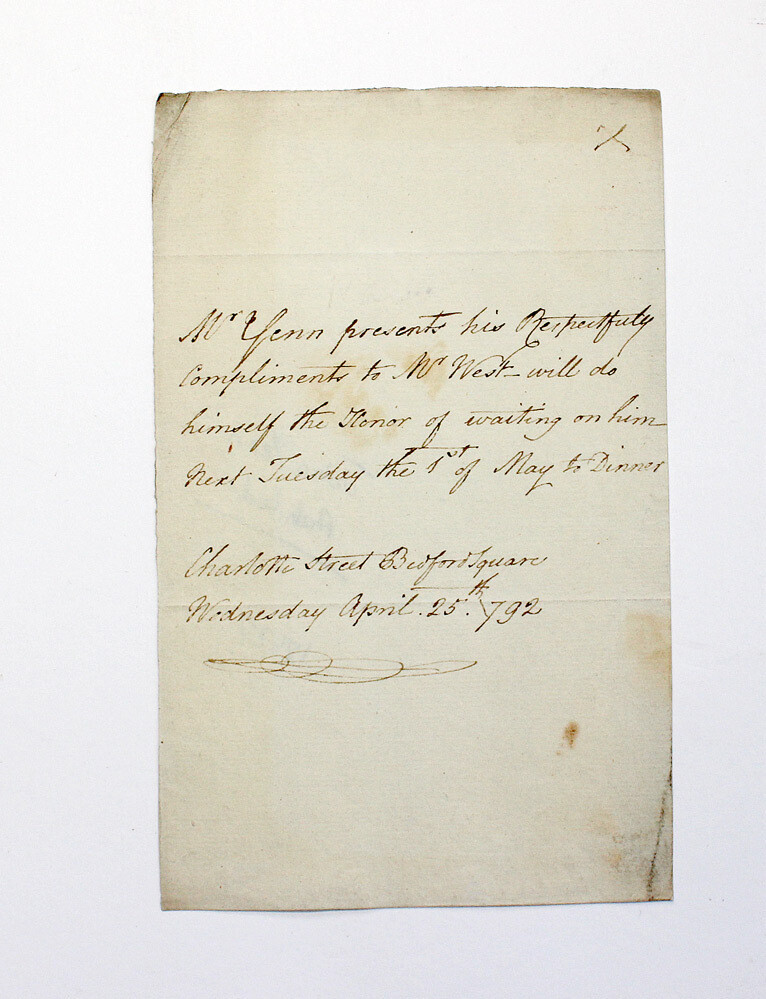 Mr Yenn presents his Respectfuly
Compliments to Mr West – will do
himself the Honor of waiting on him
Next Tuesday the 1st of May to Dinner
Charlotte Street Bedford Square
Wednesday April. 25th. 1792